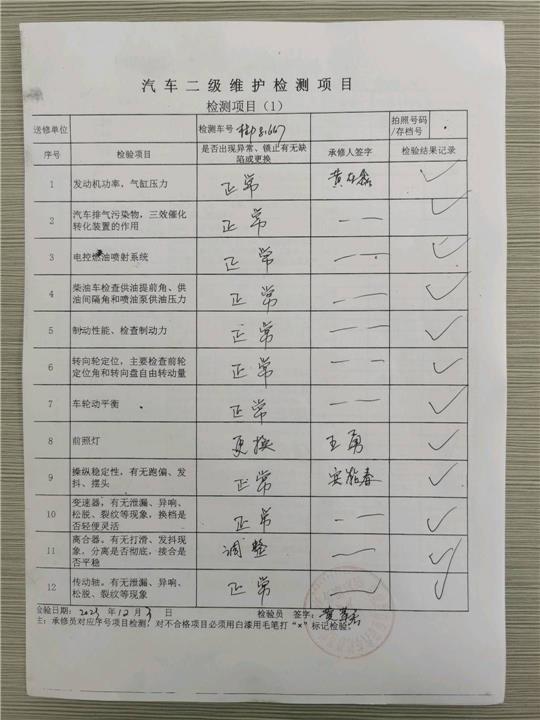 汽车二级维护检测项目
检测项目（1）
送修单位 检测车号 拍照号码/存档号
序号 检验项目 是否出现异常、锁止有无缺陷或更换 承修人签字 检验结果记录
1 发动机功率，气缸压力 正常 ✓
2 汽车排气污染物，三效催化转化装置的作用 正常 —— ✓
3 电控燃油喷射系统 正常 —— ✓
4 柴油车检查供油提前角、供油间隔角和喷油泵供油压力 正常 —— ✓
5 制动性能、检查制动力 正常 —— ✓
6 转向轮定位，主要检查前轮定位角和转向盘自由转动量 正常 —— ✓
7 车轮动平衡 正常 —— ✓
8 前照灯 更换 王勇 ✓
9 操纵稳定性，有无跑偏、发抖、摆头 正常 ✓
10 变速器，有无泄漏、异响、松脱、裂纹等现象，换档是否轻便灵活 正常 —— ✓
11 离合器。有无打滑、发抖现象，分离是否彻底，接合是否平稳 调整 —— ✓
12 传动轴。有无泄漏、异响、松脱、裂纹等现象 正常 —— ✓
检验日期：2023 年 12 月 3 日 检验员 签字：
主：承修员对应序号项目检测，对不合格项目必须用白漆用毛笔打“×”标记检验。